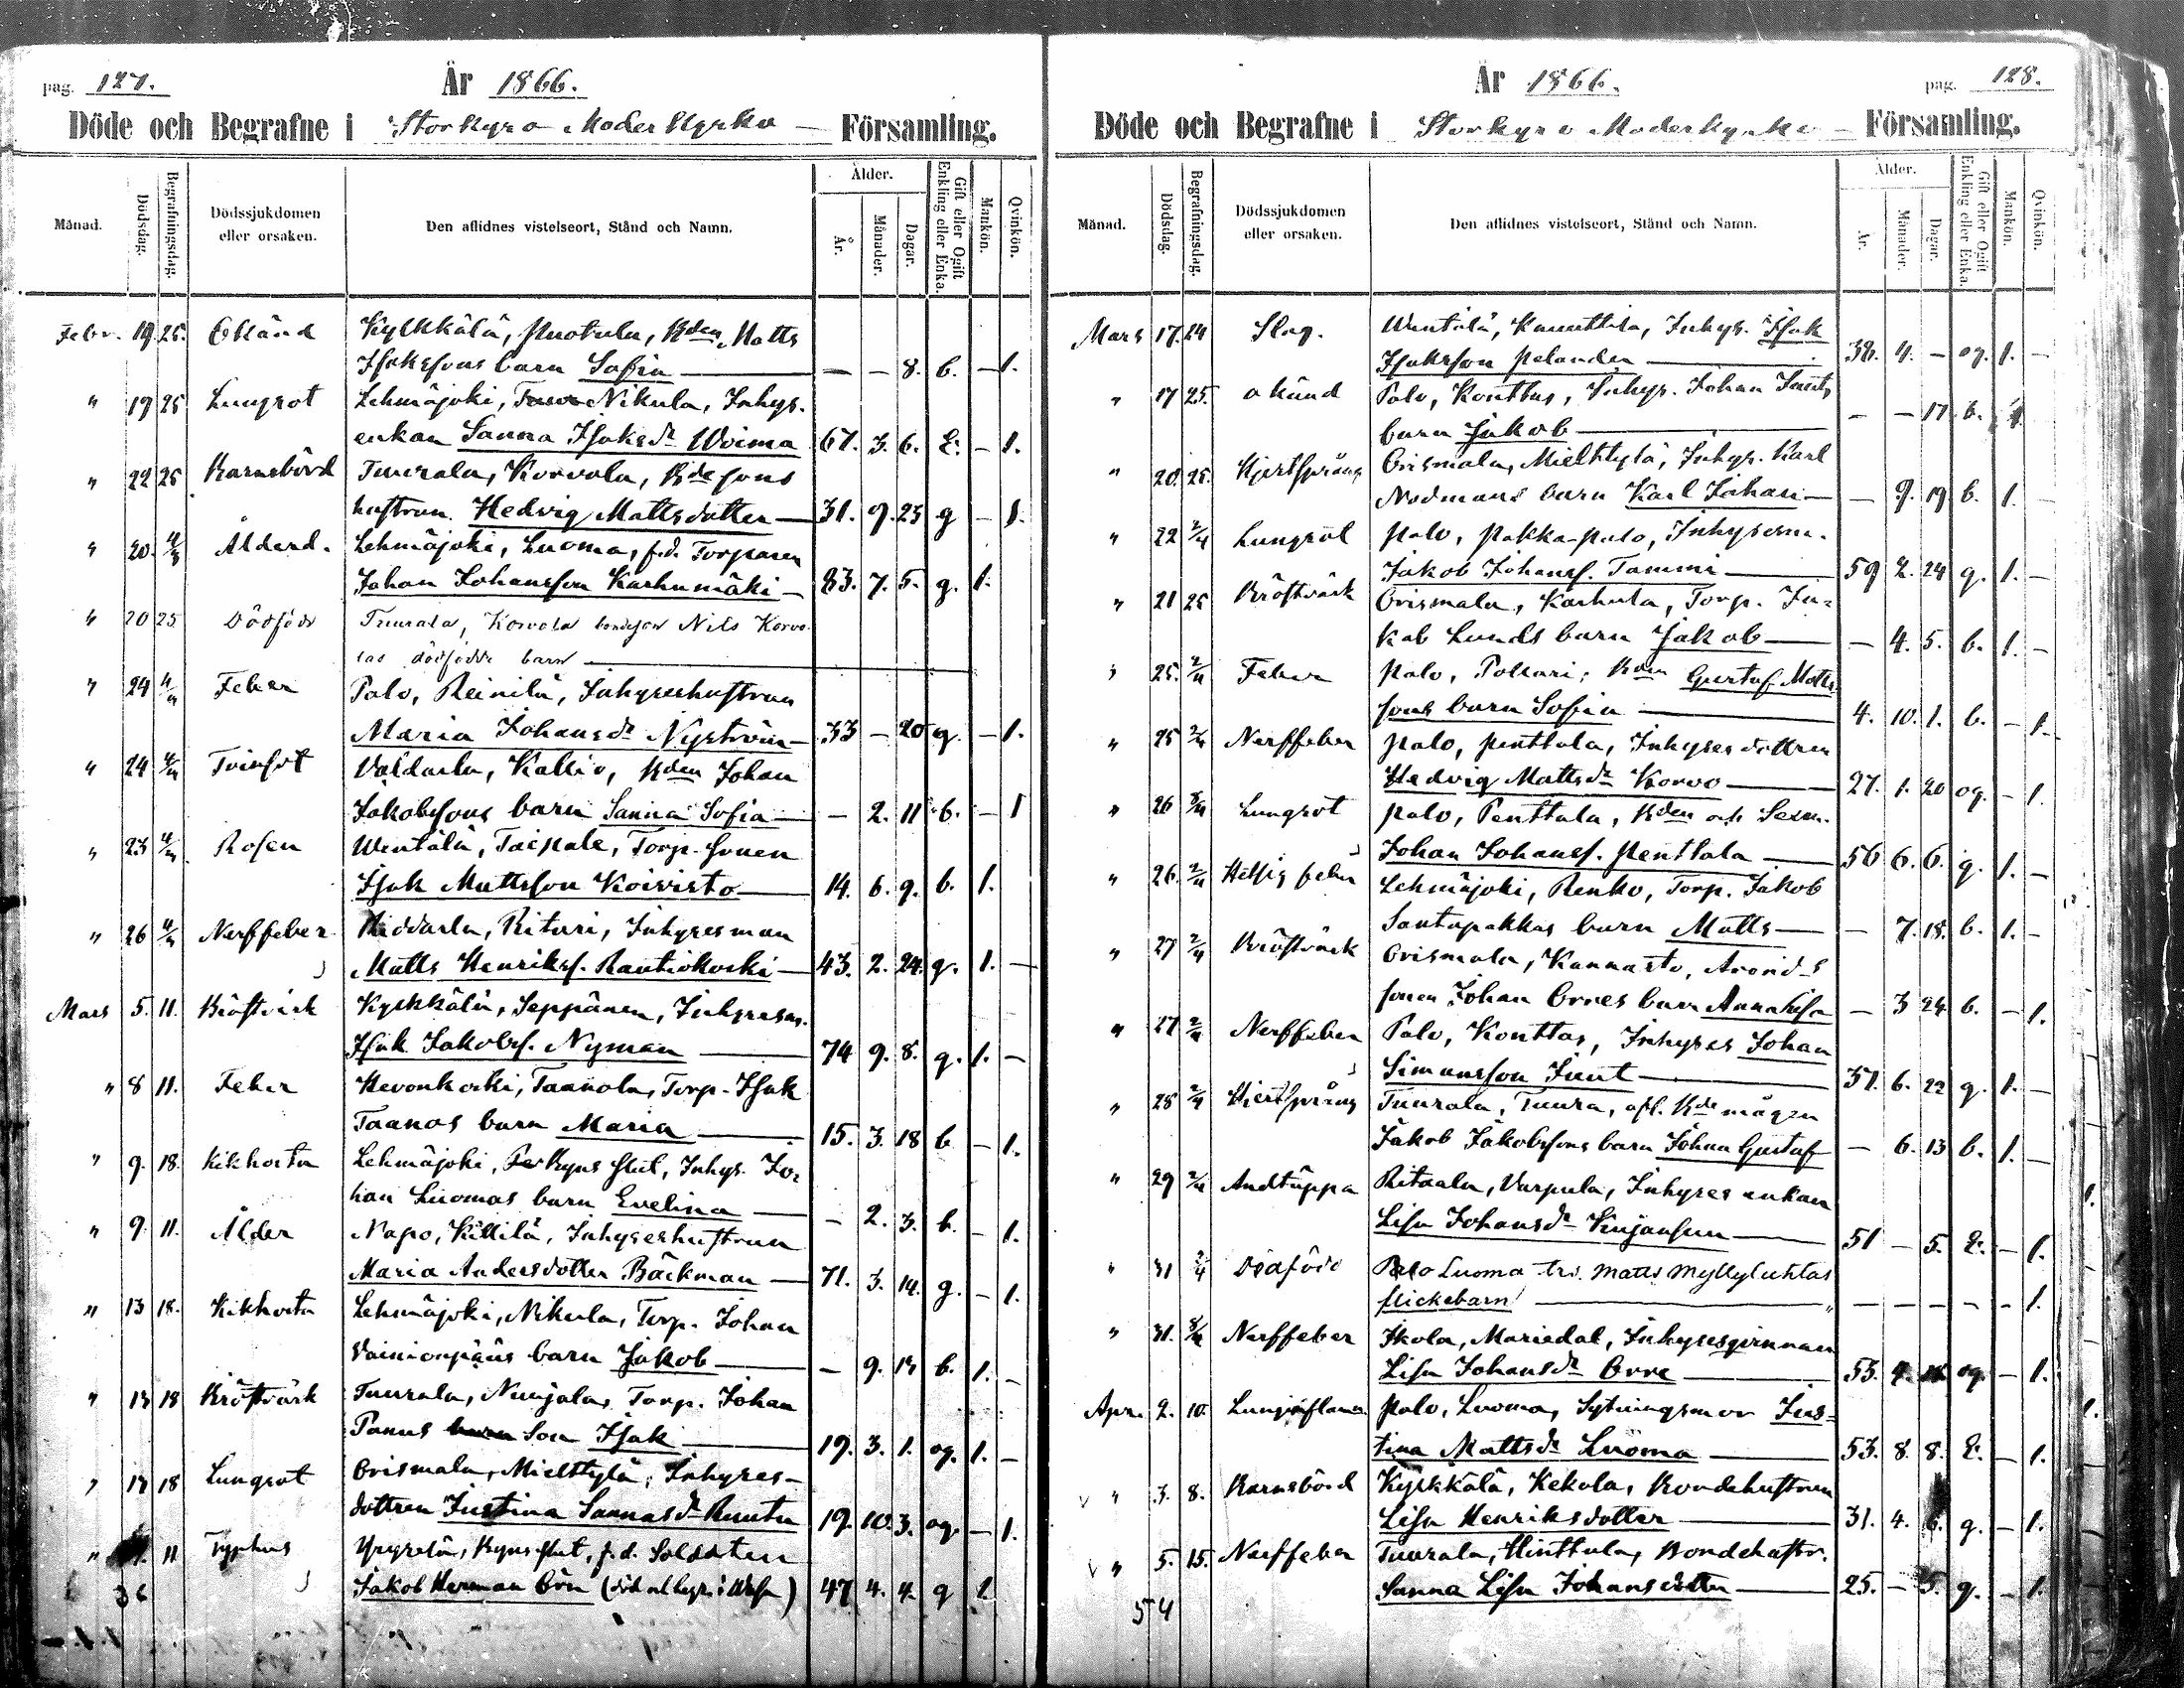 pag. 127.
År 1866.
Döde och Begrafne i Storkyro Moderkyrko Församling.
Månad.
Dödsdag.
Begrafningsdag.
Dödssjukdomen eller orsaken.
Den aflidnes vistelseort, Stånd och Namn.
Ålder.
År.
Månader.
Dagar.
Gift eller Ogift Enkling eller Enka.
Mankön.
Qvinkön.
Febr. 19. 25. Okänd Kylkkälä, Puotula, Bden Matts
Isakssons barn Sofia — — 8. b. — 1.
" 19 25 Lungsot Lehmäjoki, Nikula, Inhys.
enkan Sanna Isaksdr Woima 67. 3. 6. E. — 1.
" 22 25 Barnsbörd Tuurala, Korvola, Bdesons
hustrun Hedvig Mattsdotter — 31. 9. 23 g — 1.
" 20. 4/3 Ålderd. Lehmäjoki, Luoma, f.d. Torparen
Johan Johansson Karhumäki — 83. 7. 5. g. 1.
" 20 25 Dödfödd Tuurala, Korvola bondeson Nils Korvo-
las dödfödde barn —
" 24 Feber Palo, Reinilä, Inhyseshustrun
Maria Johansdr Nyström — 33 — 20 g. — 1.
" 24 Tvinsot Valdarla, Kallio, Bden Johan
Jakobssons barn Sanna Sofia — — 2. 11 b. — 1
" 23 Rosen Wentälä, Taipale, Torp. sonen
Isak Mattsson Koivisto — 14. 6. 9. b. 1.
" 26 Nerffeber Hiddarla, Rituri, Inhysesman
Matts Henrikss. Rautiokoski — 43. 2. 24. g. 1. —
Mars 5. 11. Bröstvärk Kylkkälä, Seppänen, Inhysesm.
Isak Jakobss. Nyman — 74 9. 8. g. 1. —
" 8 11. Feber Hevonkoski, Taanola, Torp. Isak
Taanos barn Maria — 15. 3. 18 b — 1.
" 9. 18. Kikhosta Lehmäjoki, Perkyns slut, Inhys. Jo-
han Luomas barn Evelina — — 2. 3. b. — 1.
" 9. 11. Ålder Napo, Kittilä, Inhyseshustrun
Maria Andersdotter Bäckman — 71. 3. 14. g. — 1.
" 13 18. Kikhosta Lehmäjoki, Nikula, Torp. Johan
Vainionpääs barn Jakob — — 9. 13 b. 1. —
" 13 18 Bröstvärk Tuurala, Nuujala, Torp. Johan
Panus barn Son Isak — 19. 3. 1. og. 1. —
" 13 18 Lungsot Orismala, Mielttylä, Inhyses-
dottren Justina Sannasdr Ruutu 19. 10. 3. og. — 1.
" 11 Typhus slut, f.d. Soldaten
Jakob Herman Örn (död och begr. i Wasa) 47 4. 4. g 1
36
År 1866.
pag. 128.
Döde och Begrafne i Storkyro Moderkyrko — Församling.
Månad.
Dödsdag.
Begrafningsdag.
Dödssjukdomen eller orsaken.
Den aflidnes vistelseort, Stånd och Namn.
Ålder.
År.
Månader.
Dagar.
Gift eller Ogift Enkling eller Enka.
Mankön.
Qvinkön.
Mars 17. 24 Slag. Wentälä, Knuuttila, Inhys. Isak
Isaksson Pelander — 38. 4. — og. 1. —
" 17 25. okänd Palo, Konttas, Inhys. Johan
barn Jakob — — — 17 b. 1
" 20. 25. Hjertsprång Orismala, Mielttylä, Inhys. Karl
Nodmans barn Karl Johan — — 9. 19 b. 1. —
" 22 2/4 Lungsot Palo, Pokka-palo, Inhysesm.
Jakob Johanss. Tammi — 59 2. 24 g. 1. —
" 21 25 Bröstvärk Orismala, Karhula, Torp. Ja-
kob Lunds barn Jakob — — 4. 5. b. 1. —
" 25. 2/4 Feber Palo, Pollari, Bden Gustaf Matts-
sons barn Sofia — 4. 10. 1. b. — 1.
" 25 2/4 Nerffeber Palo, Penttala, Inhysesdottren
Hedvig Mattsdr Korvo — 27. 1. 20 og. — 1.
" 26 8/4 Lungsot Palo, Penttala, Bden och Sexm.
Johan Johanss. Penttala — 56 6. 6. g. 1. —
" 26. 2/4 Hetsig feber Lehmäjoki, Renko, Torp. Jakob
Santapakkas barn Matts — — 7. 18. b. 1. —
" 27 2/4 Bröstvärk Orismala, Kannasto, Arends
sonen Johan Orres barn Anna Lisa — 3 24 b. — 1.
" 27 2/4 Nerffeber Palo, Konttas, Inhyses Johan
Simonsson — 37. 6. 22 g. 1. —
" 28 2/4 Hjertsprång Tuurala, Tuura, afl. Bde mågen
Jakob Jakobssons barn Johan Gustaf — 6. 13 b. 1. —
" 29 2/4 Andtäppa Ritaala, Varpula, Inhyses enkan
Lisa Johansdr Kujanpuu — 51 — 5. E. — 1.
" 31 2/4 Dödfödd Palo Luoma Matts Myllyluhtas
flickebarn — " — — — — — 1.
" 31. 8/4 Nerffeber Ikola, Mariedal, Inhysesqvinnan
Lisa Johansdr Orre — 53. og. — 1.
Apr. 2. 10. Lunginflam. Palo, Luoma, Sytningsmor Jus-
tina Mattsdr Luoma — 53. 8. 8. E. — 1.
" 3. 8. Barnsbörd Kylkkälä, Kekola, Bondehustrun
Lisa Henriksdotter — 31. 4. 6. g. — 1.
" 5. 15. Nerffeber Tuurala, Hinttula, Bondehustr.
Sanna Lisa Johansdotter — 25. — 5. g. — 1.
54